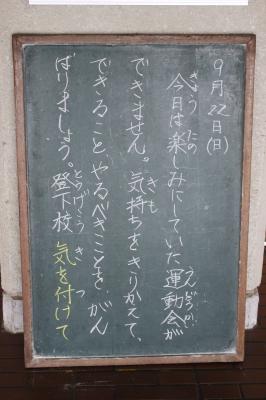 9月22日(日)
今日は楽しみにしていた運動会が
できません。気持ちをきりかえて、
できること、やるべきことを、がん
ばりましょう。登下校 気を付けて
きょう たの うんどうかい
きも
とうげこう き つ